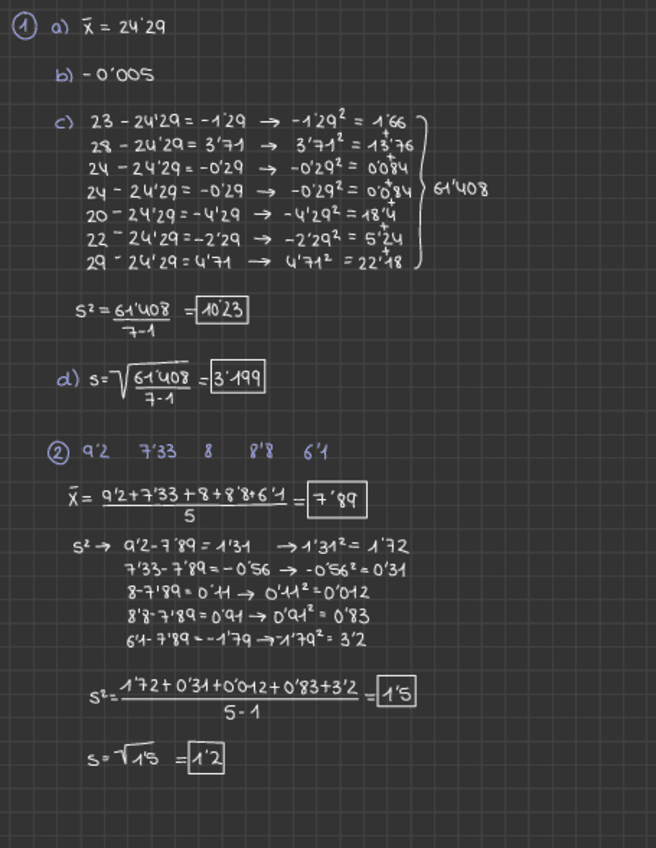 ① a) x̄ = 24'29
b) -0'005
c) 23 - 24'29 = -1'29 → -1'29² = 1'66
+
28 - 24'29 = 3'71 → 3'71² = 13'76
+
24 - 24'29 = -0'29 → -0'29² = 0'084
+
24 - 24'29 = -0'29 → -0'29² = 0'084 } 61'408
+
20 - 24'29 = -4'29 → -4'29² = 18'4
+
22 - 24'29 = -2'29 → -2'29² = 5'24
+
29 - 24'29 = 4'71 → 4'71² = 22'18
s² = 61'408 = 10'23
7-1
d) s = √61'408 = 3'199
7-1
② 9'2 7'33 8 8'8 6'1
x̄ = 9'2+7'33+8+8'8+6'1 = 7'89
5
s² → 9'2-7'89 = 1'31 → 1'31² = 1'72
7'33-7'89 = -0'56 → -0'56² = 0'31
8-7'89 = 0'11 → 0'11² = 0'012
8'8-7'89 = 0'91 → 0'91² = 0'83
6'1-7'89 = -1'79 → -1'79² = 3'2
s² = 1'72+0'31+0'012+0'83+3'2 = 1'5
5-1
s = √1'5 = 1'2